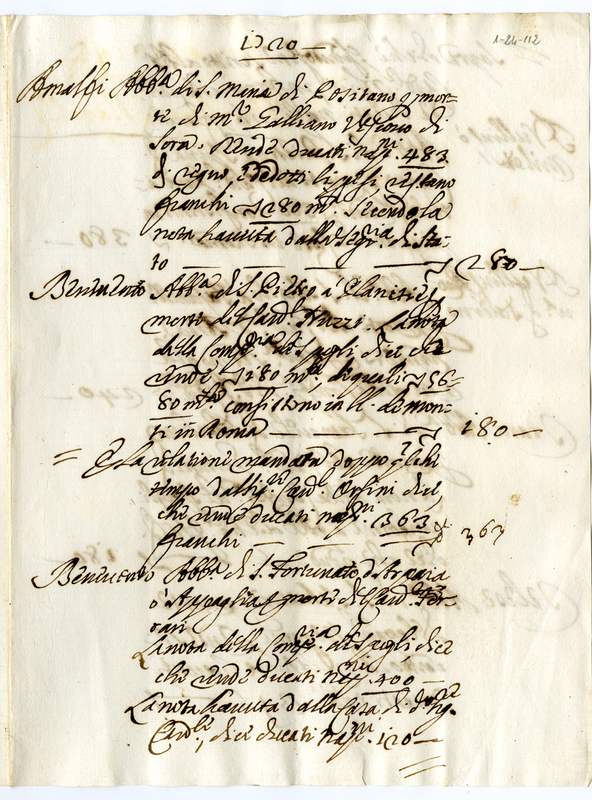 1720
1-24-112
Amalfi Abb.a di S. Maria di Positano p mor-
te di m.r Galliano Vescovo di
Sora. Rende ducati nap.ni 483
di regno, e dedotti li pesi restano
franchi 280 m.ta Secondo la
nota havuta dalla Seg.ria di Sta-
to 280
Benevento Abb.a di S. Pietro á Planitiẽ p
morte del Card.l Nuzzi. La nota
della Comp.ria de Spogli dice che
rende 180 m.ta, de quali 156-
80 m.ta consistono in ll. di mon-
ti in Roma 180
= E la relatione mandata doppo q.lche
tempo dal Sig.r Card. Orsini dice
che rende ducati nap.ni 363
franchi 363
Benevento Abb.a di S. Fortunato d'Arpaia
ó Arpaglia p morte del Card. Fer-
rari
La nota della Comp.ria de Spogli dice
che rende ducati nap.ni 400
La nota havuta dalla Casa di d.o
Card.le, dice ducati nap.ni 120